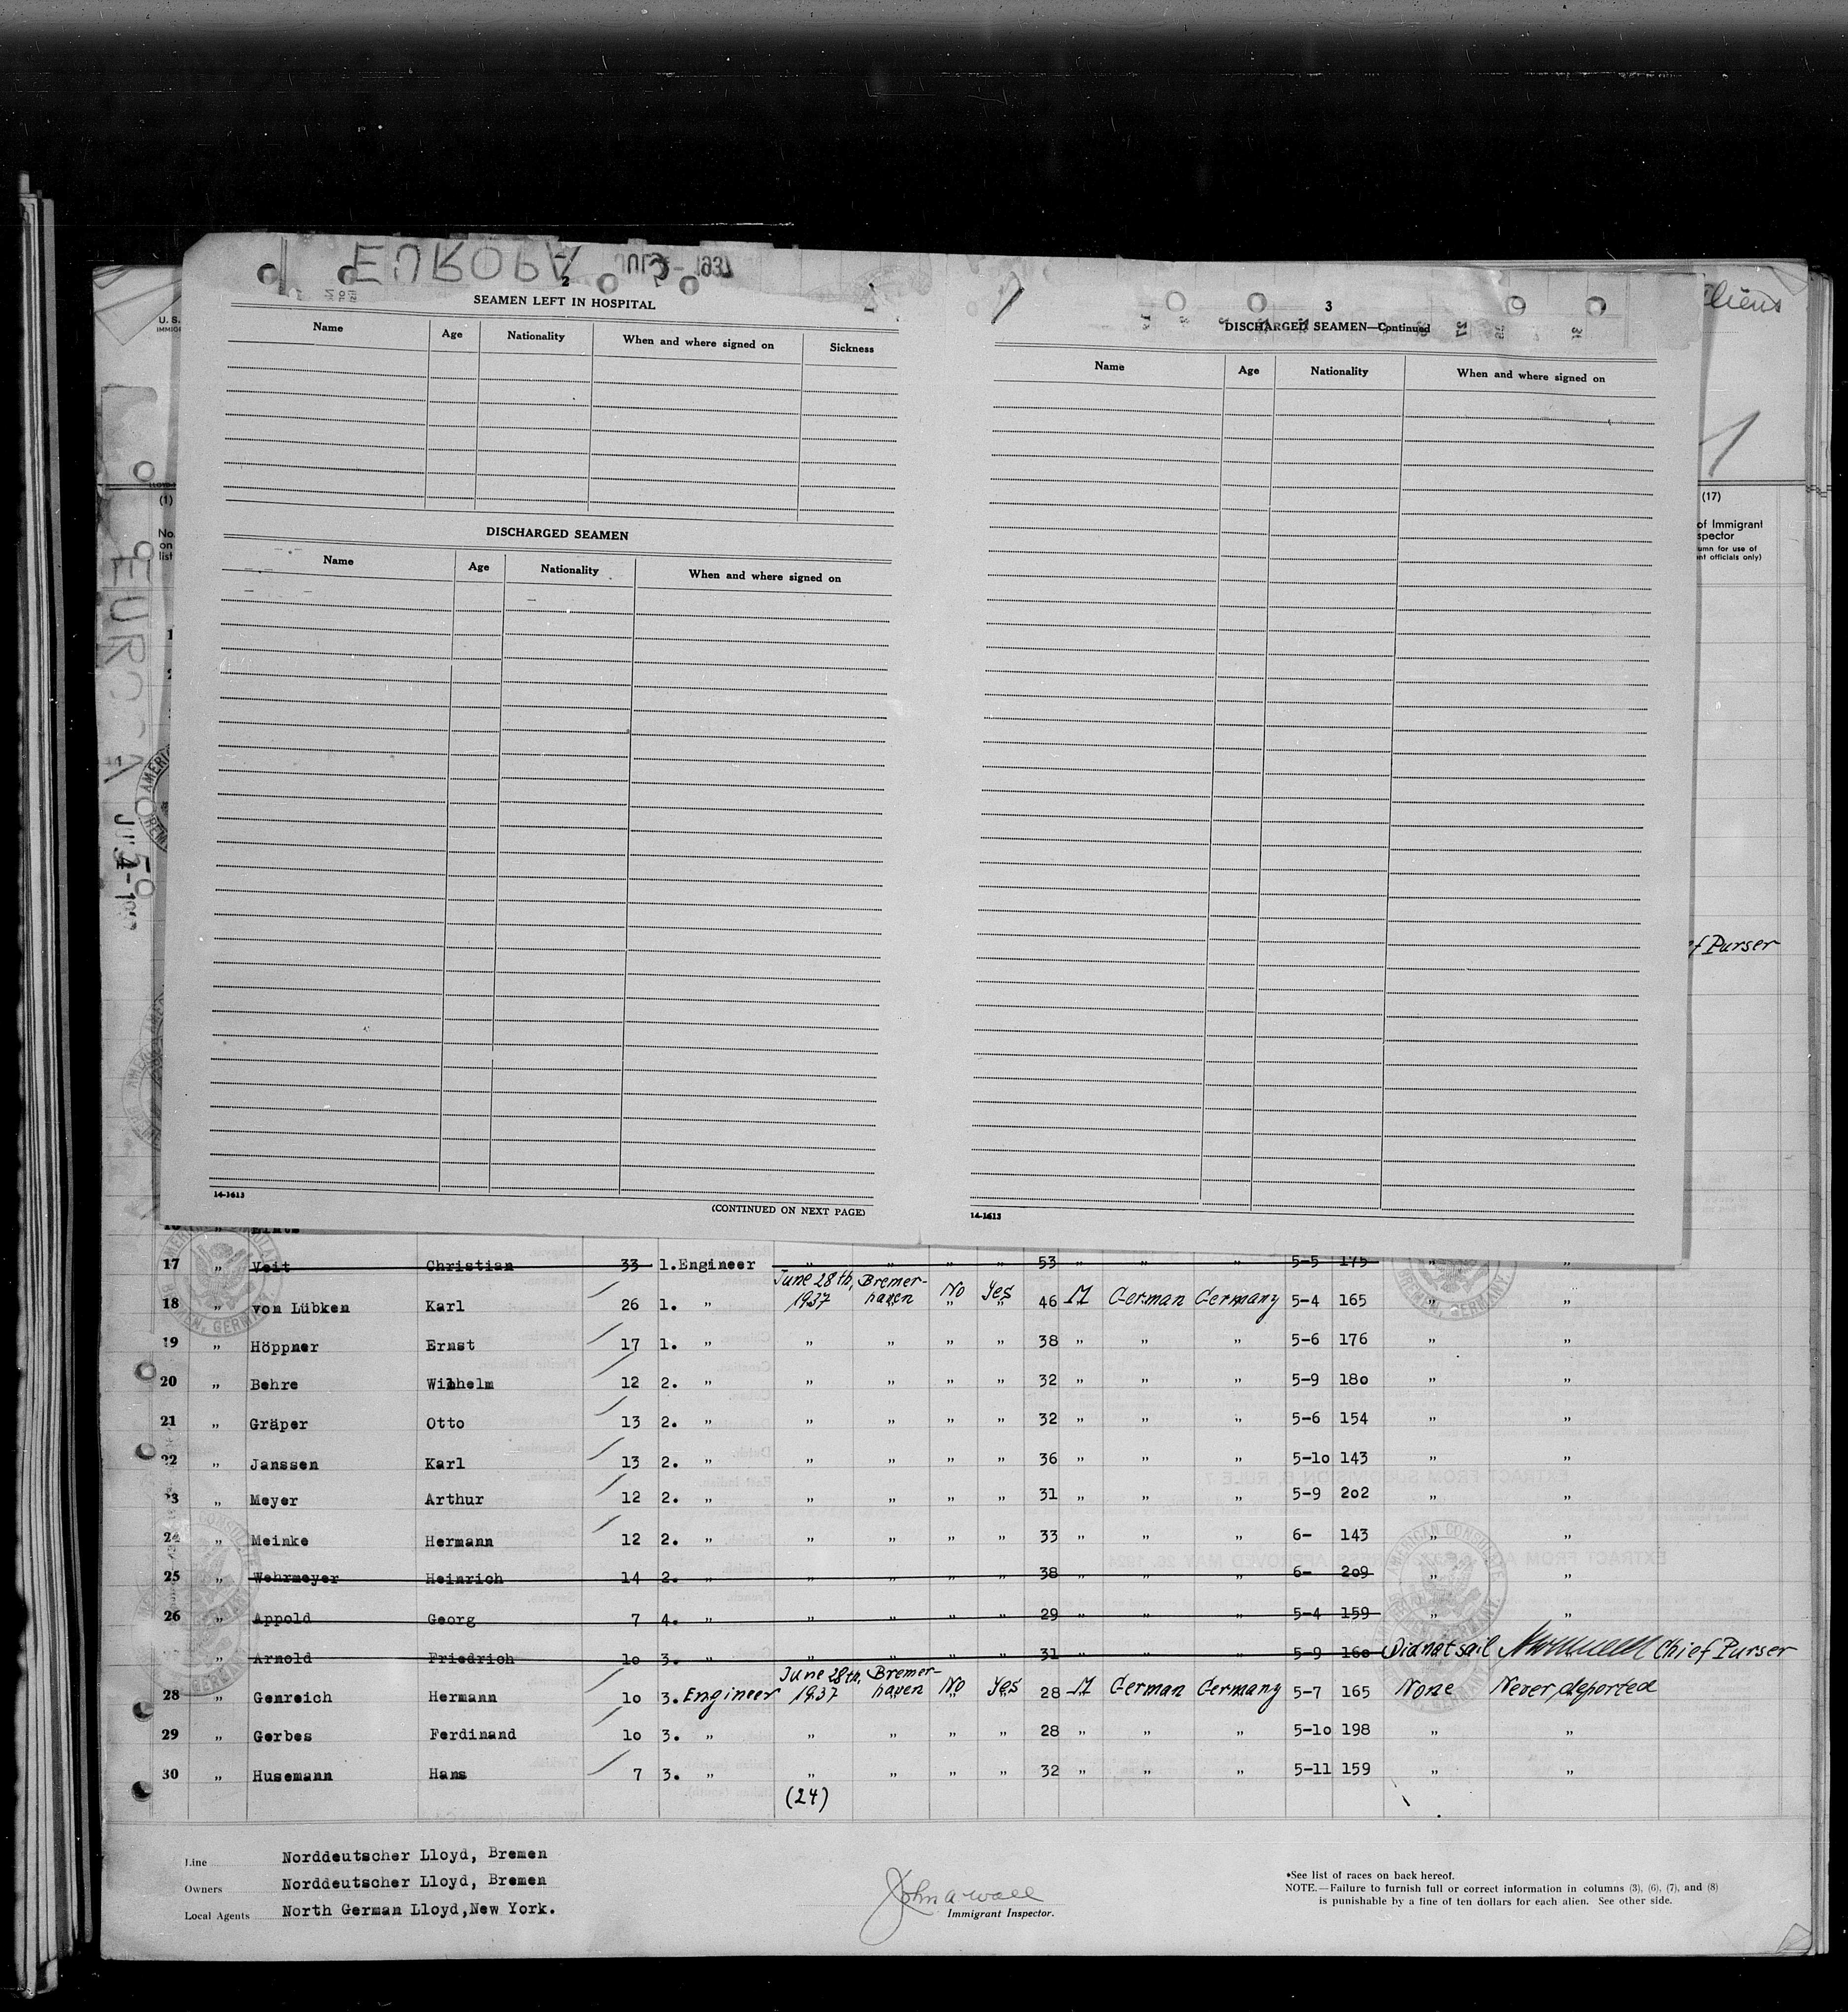 EUROPA
2
SEAMEN LEFT IN HOSPITAL
Name Age Nationality When and where signed on Sickness
DISCHARGED SEAMEN
Name Age Nationality When and where signed on
14-1613
(CONTINUED ON NEXT PAGE)
3
DISCHARGED SEAMEN—Continued
Name Age Nationality When and where signed on
14-1613
U. S.
(1)
No.
on
list
EUROPA
(17)
of Immigrant
spector
umn for use of
nt officials only)
ef Purser
17 " Veit Christian 33 1. Engineer " " " " 53 " " " 5-5 175 " "
18 " von Lübken Karl 26 1. " June 28th, 1937 Bremer-haven No Yes 46 M German Germany 5-4 165 " "
19 " Höppner Ernst 17 1. " " " " " 38 " " " 5-6 176 " "
20 " Behre Wilhelm 12 2. " " " " " 32 " " " 5-9 180 " "
21 " Gräper Otto 13 2. " " " " " 32 " " " 5-6 154 " "
22 " Janssen Karl 13 2. " " " " " 36 " " " 5-10 143 " "
23 " Meyer Arthur 12 2. " " " " " 31 " " " 5-9 202 " "
24 " Meinke Hermann 12 2. " " " " " 33 " " " 6- 143 " "
25 " Wehrmeyer Heinrich 14 2. " " " " " 38 " " " 6- 209 " "
26 " Appold Georg 7 4. " " " " " 29 " " " 5-4 159 " "
" Arnold Friedrich 10 3. " " " " " 31 " " " 5-9 160 Did not sail Chief Purser
28 " Genreich Hermann 10 3. Engineer June 28th, 1937 Bremer-haven No Yes 28 M German Germany 5-7 165 None Never deported
29 " Gerbes Ferdinand 10 3. " " " " " 28 " " " 5-10 198 " "
30 " Husemann Hans 7 3. " " " " " 32 " " " 5-11 159 " "
(24)
Line Norddeutscher Lloyd, Bremen
Owners Norddeutscher Lloyd, Bremen
Local Agents North German Lloyd, New York.
John A Wall
Immigrant Inspector.
*See list of races on back hereof.
NOTE.—Failure to furnish full or correct information in columns (3), (6), (7), and (8)
is punishable by a fine of ten dollars for each alien. See other side.